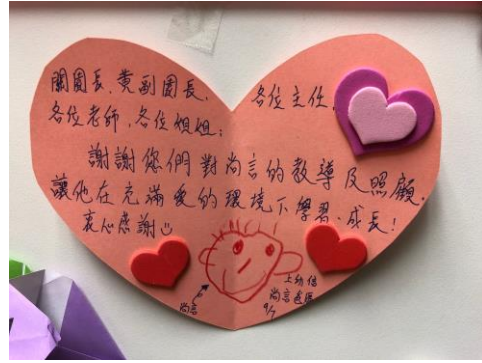 關園長，黃副園長， 各位主任，
各位老師，各位姐姐：
謝謝您們對尚言的教導及照顧，
讓他在充滿愛的環境下學習、成長！
衷心感謝
尚言
上 幼信
尚言
9/7